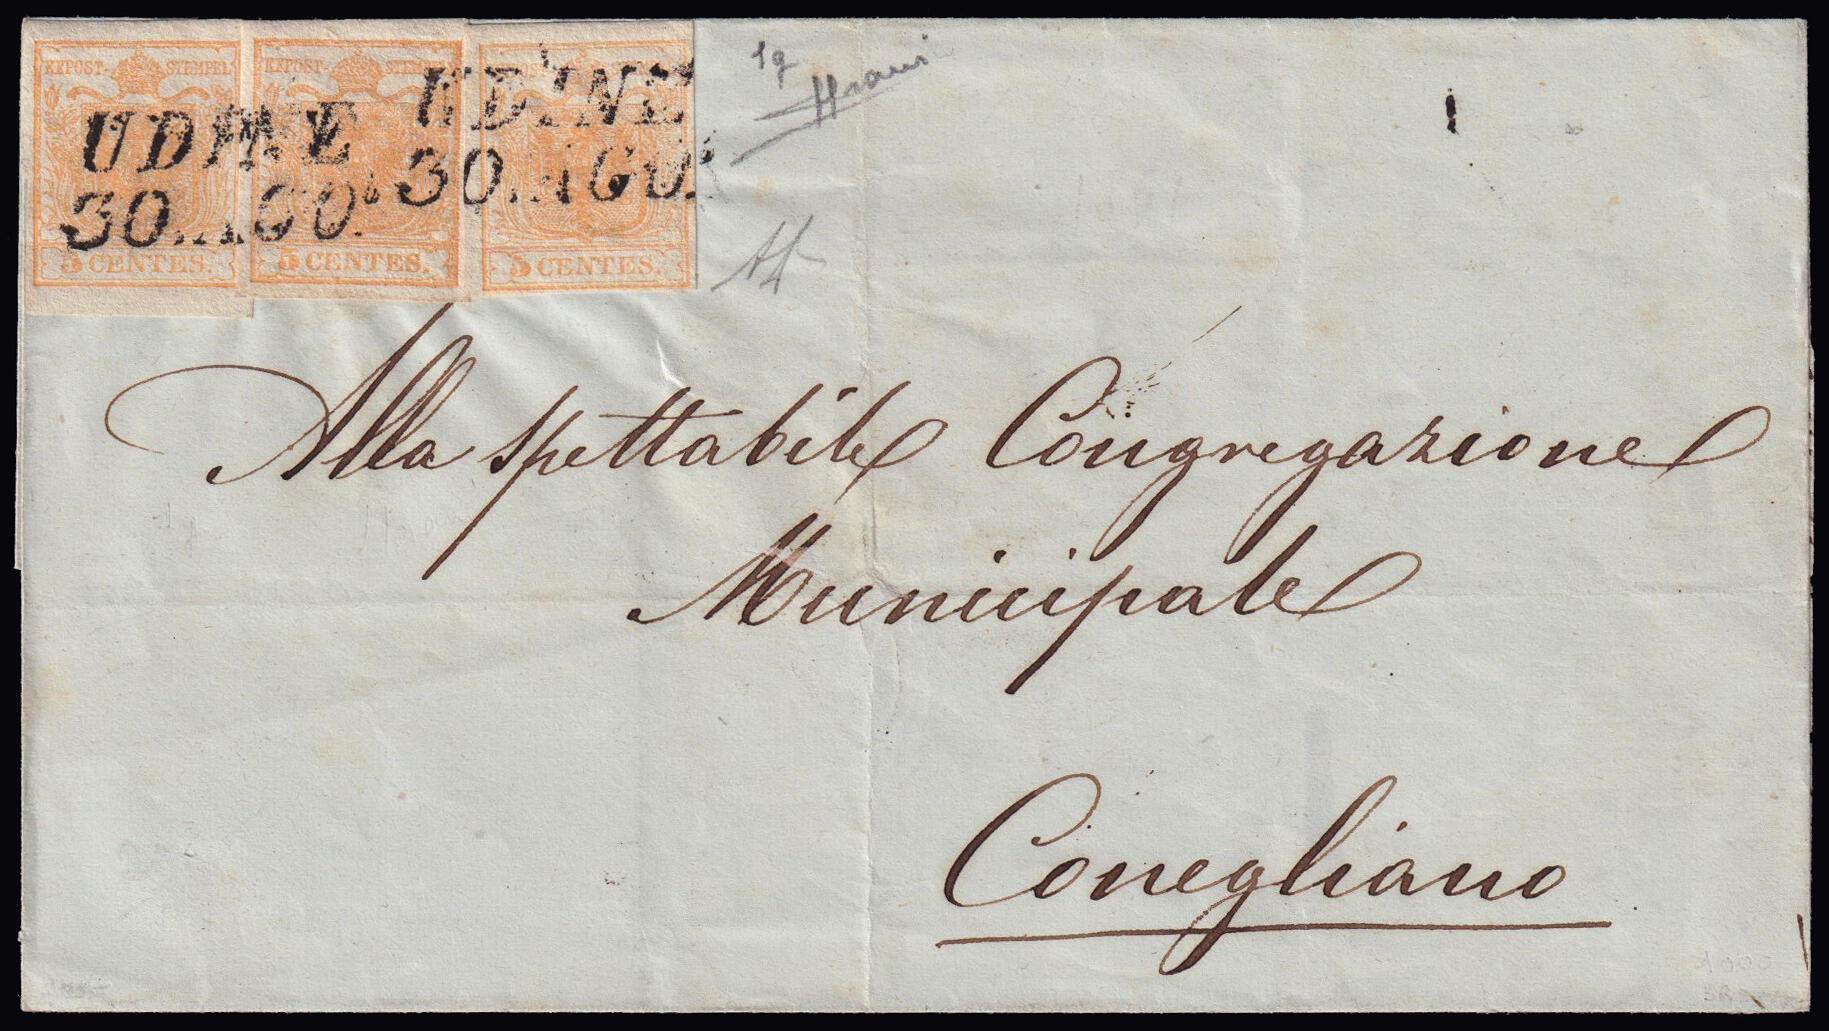 KKPOST-STEMPEL KKPOST-STEMPEL
UDINE UDINE
30.AGO. 30.AGO.
5 CENTES. 5 CENTES. 5 CENTES.
Alla spettabile Congregazione
Municipale
Conegliano
1000